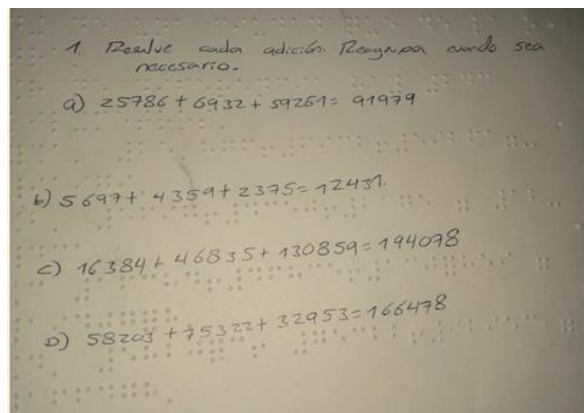 1. Resolve cada adición. Reagrupa cuando sea
necesario.
a) 25786 + 6932 + 59261 = 91979
b) 5697 + 4359 + 2375 = 12431.
c) 16384 + 46835 + 130859 = 194078
D) 58203 + 75322 + 32953 = 166478